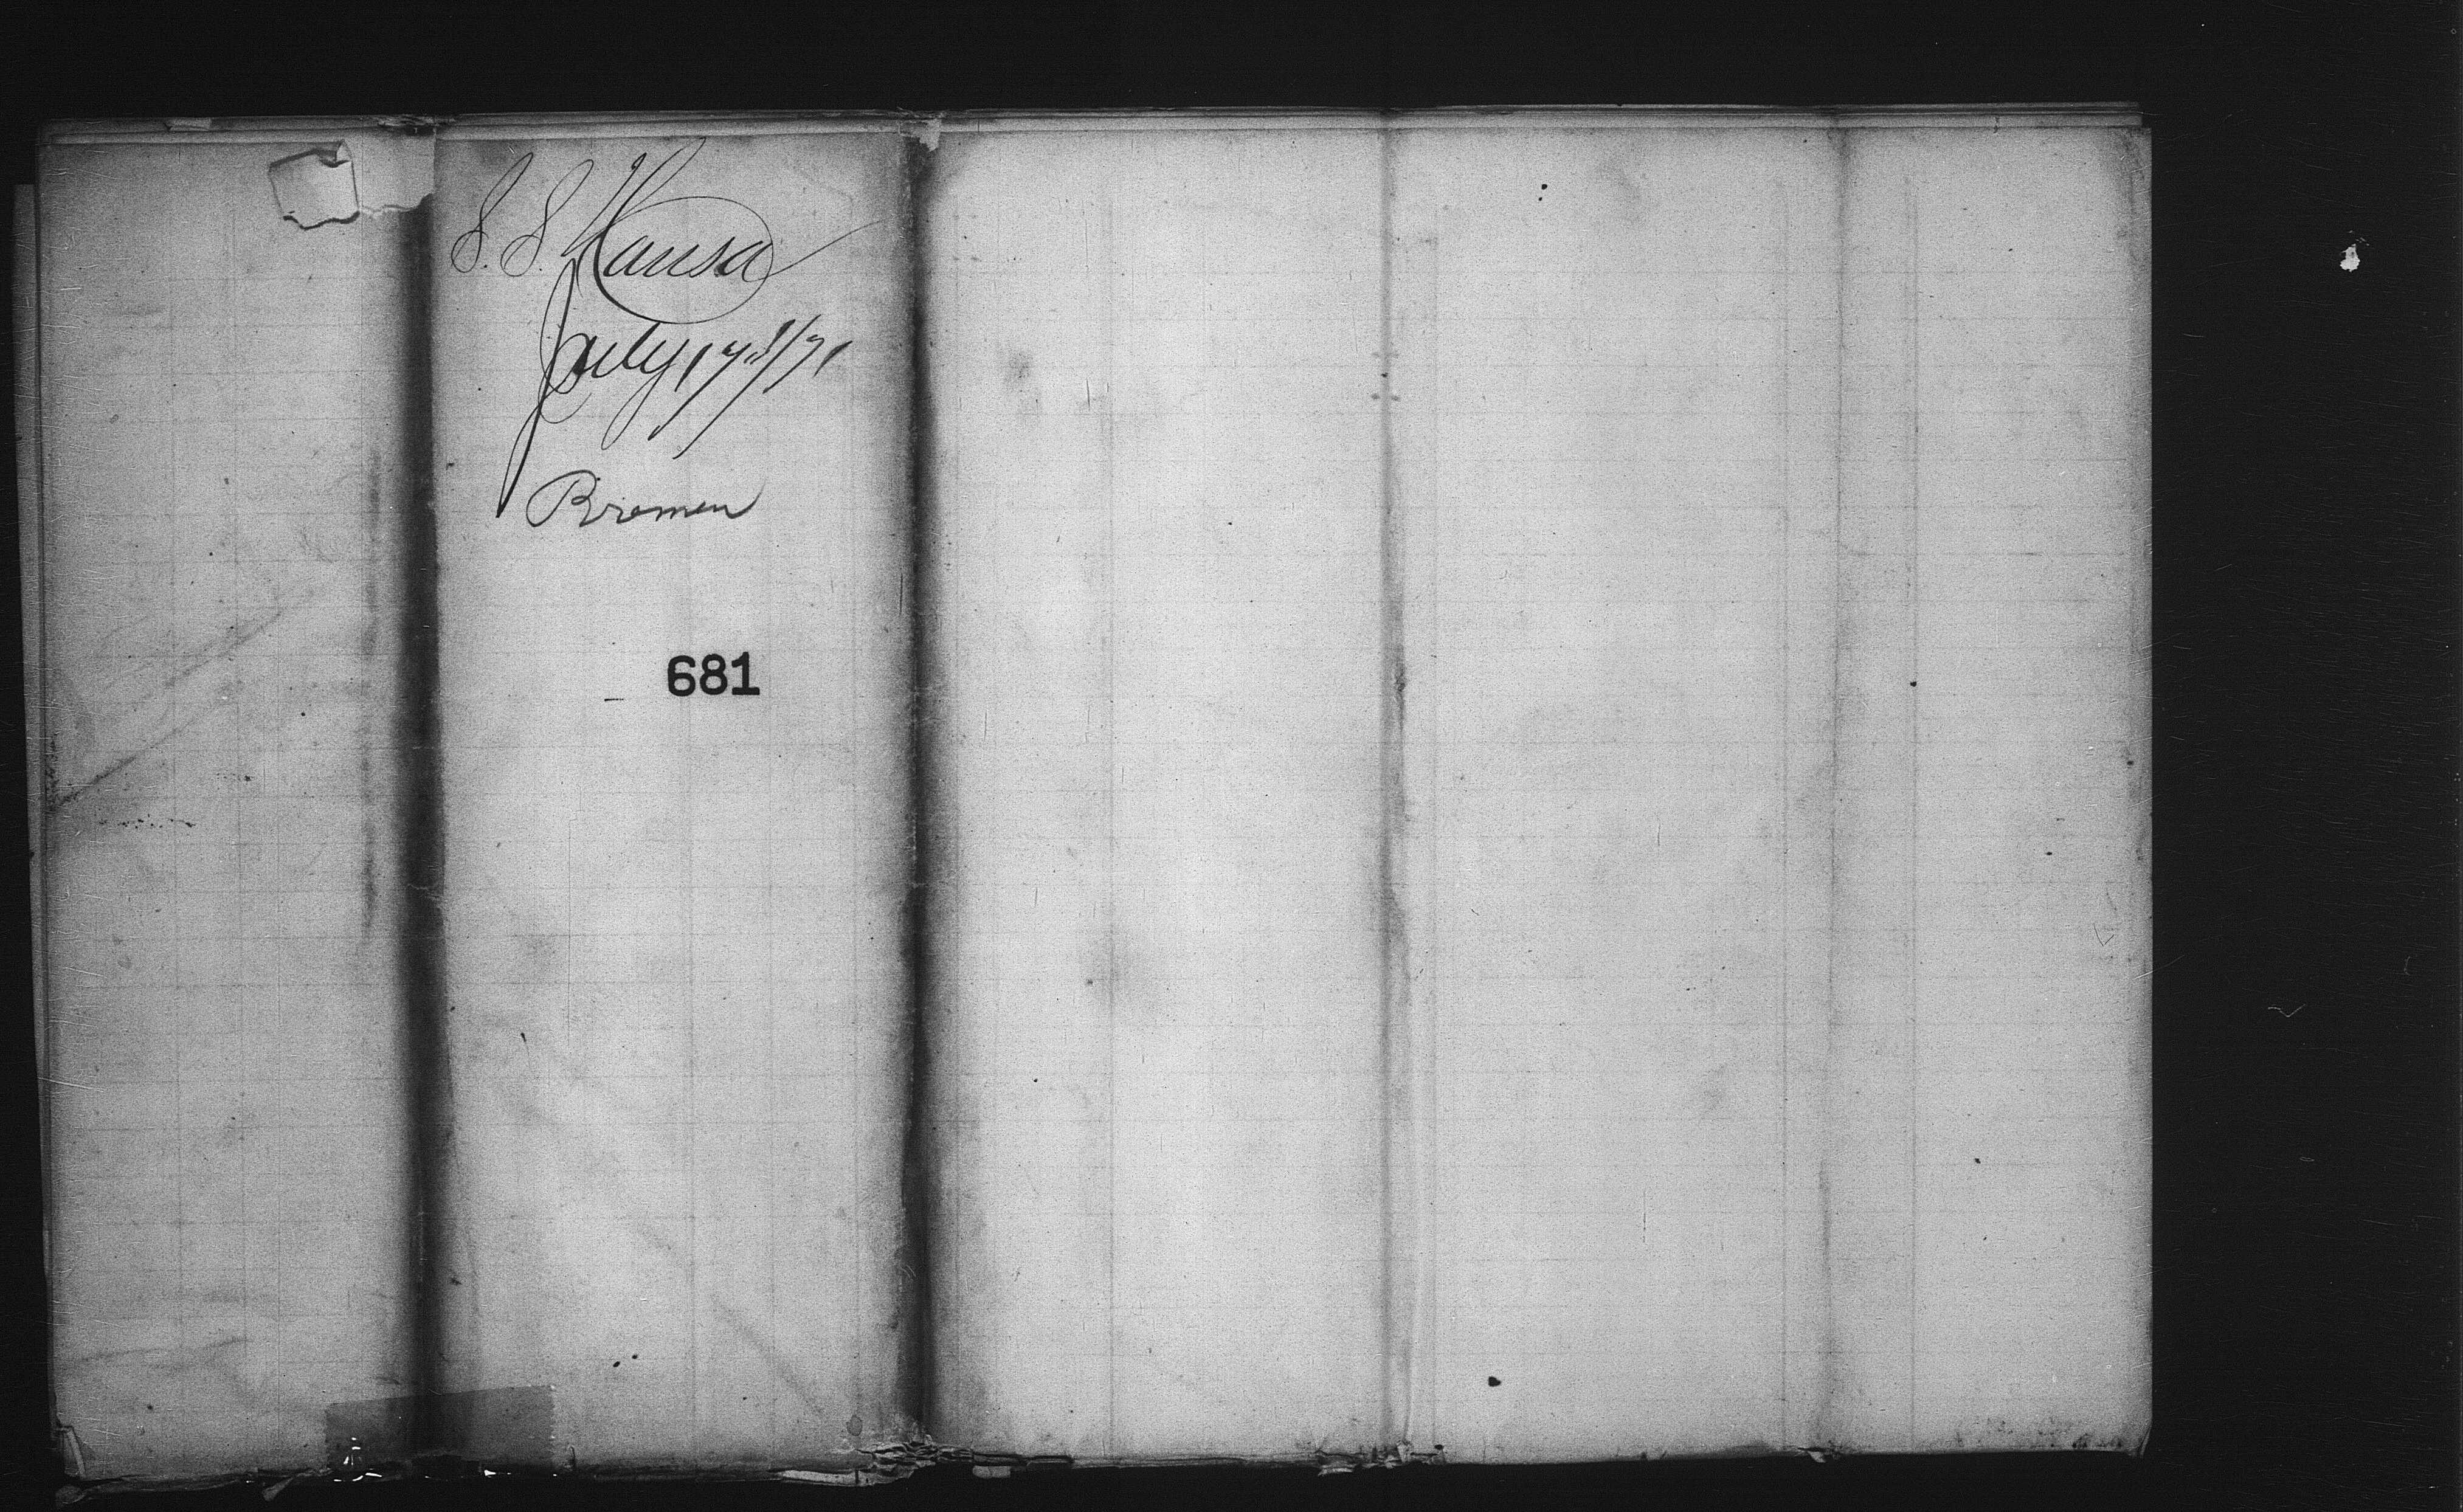 S. S. Hansa
July 17th/71
Bremen
681